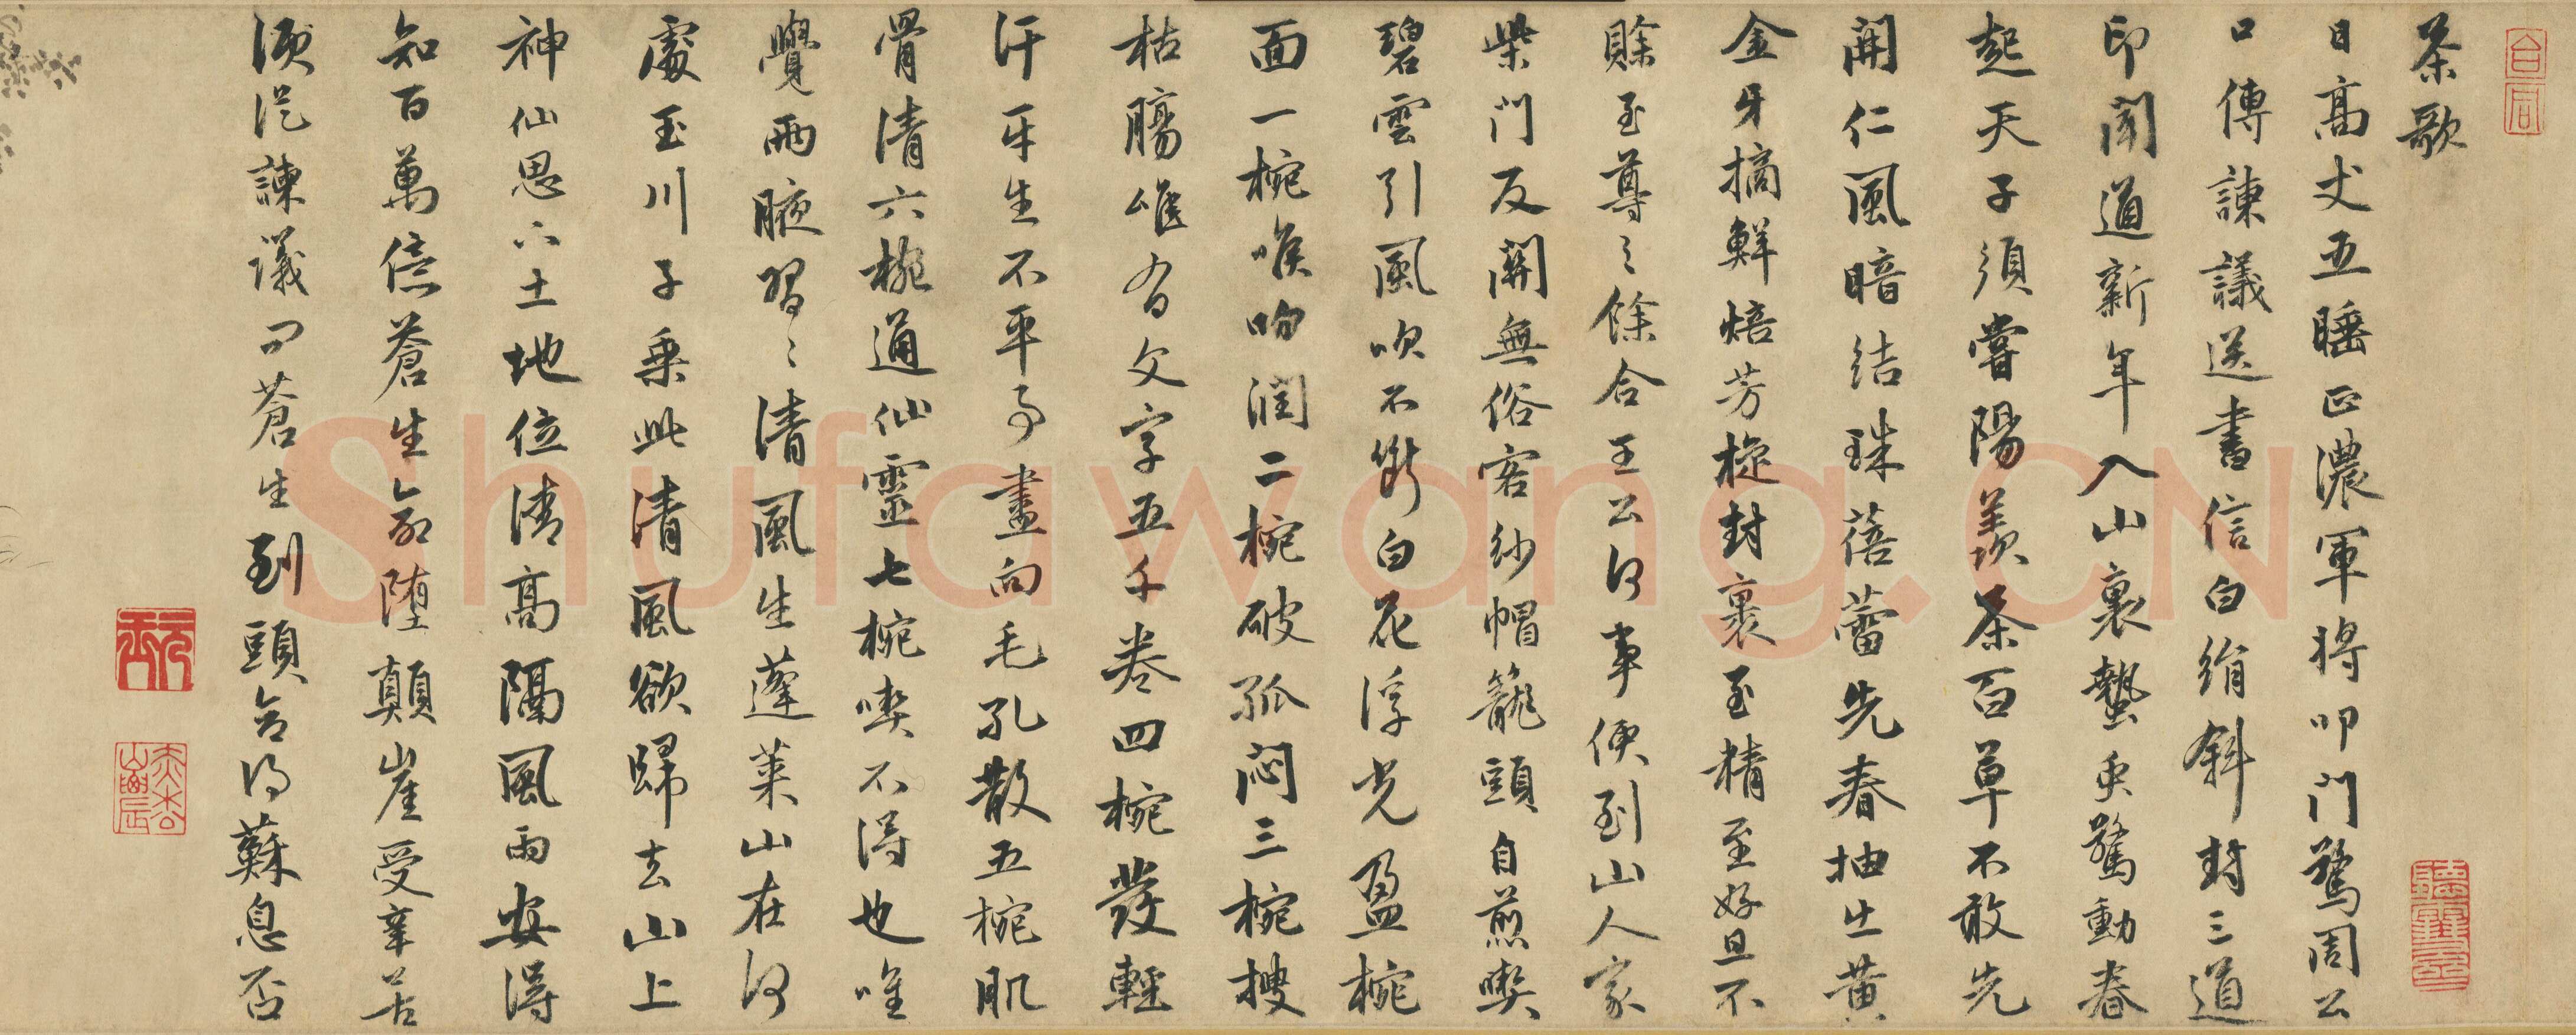 茶歌
日高丈五睡正濃軍將叩門驚周公
口傳諫議送書信白絹斜封三道
印聞道新年入山裏蟄虫驚動春
起天子須嘗陽羨茶百草不敢先
開仁風暗結珠蓓蕾先春抽出黃
金牙摘鮮焙芳旋封裹至精至好且不
賒至尊之餘合王公何事便到山人家
柴門反關無俗客紗帽籠頭自煎喫
碧雲引風吹不斷白花浮光盈椀
面一椀喉吻潤二椀破孤悶三椀搜
枯腸唯有文字五千卷四椀發輕
汗平生不平事盡向毛孔散五椀肌
骨清六椀通仙靈七椀喫不得也唯
覺兩腋習〻清風生蓬萊山在何
處玉川子乘此清風欲歸去山上
神仙思下土地位清高隔風雨安得
知百萬億蒼生命墮顛崖受辛苦
須從諫議問蒼生到頭合得蘇息否
Shufawang.CN